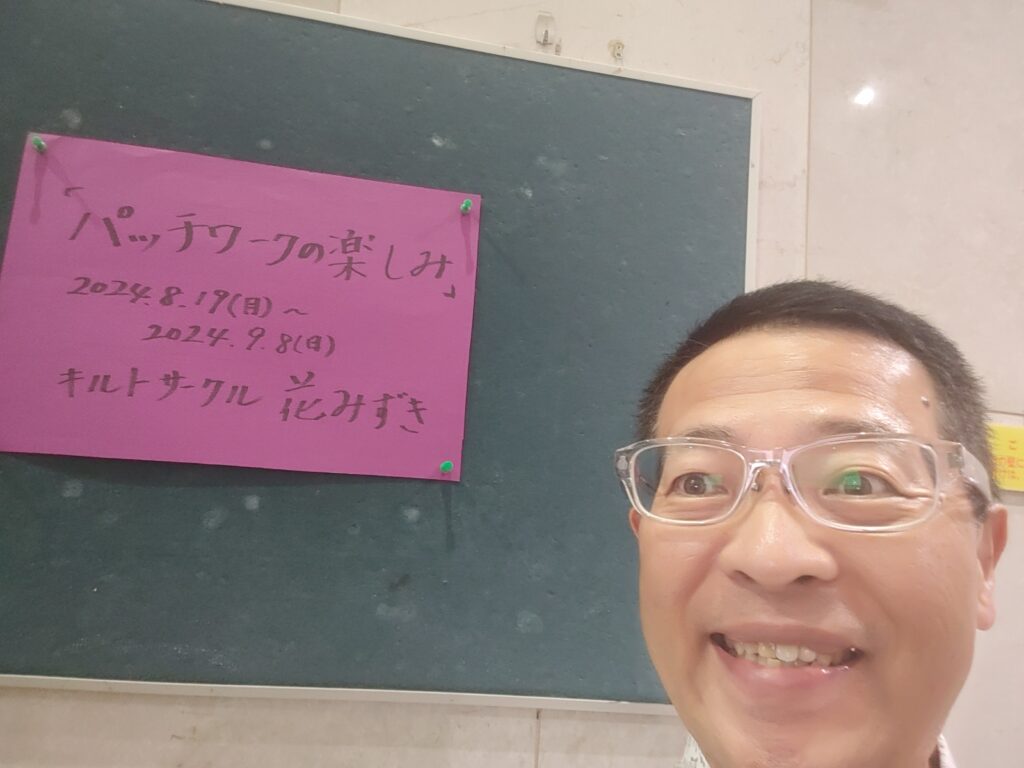 「パッチワークの楽しみ」
2024.8.19(月)~
2024.9.8(日)
キルトサークル 花みずき